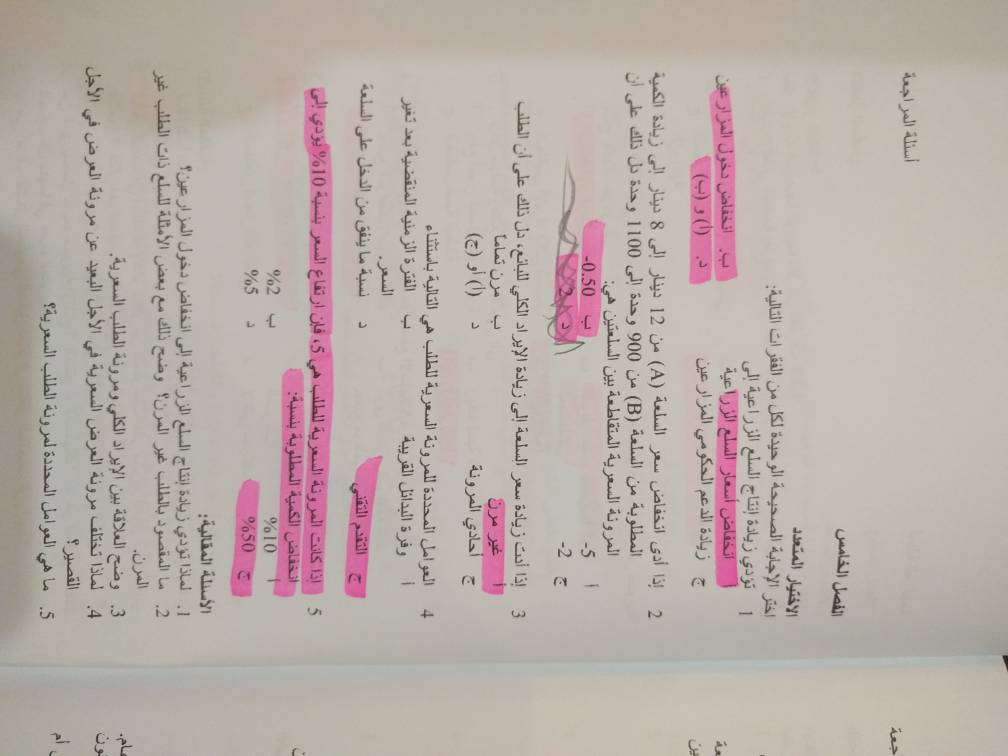 أسئلة المراجعة
الفصل الخامس
الاختيار المتعدد
اختر الإجابة الصحيحة الوحيدة لكل من الفقرات التالية:
1 تؤدي زيادة إنتاج السلع الزراعية إلى
أ انخفاض أسعار السلع الزراعية ب. انخفاض دخول المزارعين
ج زيادة الدعم الحكومي المزارعين د. (أ) و (ب)
2 إذا أدى انخفاض سعر السلعة (A) من 12 دينار إلى 8 دينار إلى زيادة الكمية
المطلوبة من السلعة (B) من 900 وحدة إلى 1100 وحدة دل ذلك على أن
المرونة السعرية المتقاطعة بين السلعتين هي:
أ -5 ب -0.50
ج -2 د 2
3 إذا أدت زيادة سعر السلعة إلى زيادة الإيراد الكلي للبائع، دل ذلك على أن الطلب
أ غير مرن ب مرن تماماً
ج أحادي المرونة د (أ) أو (ج)
4 العوامل المحددة للمرونة السعرية للطلب هي التالية باستثناء
أ وفرة البدائل القريبة ب الفترة الزمنية المنقضية بعد تغير
السعر.
ج التقدم التقني د نسبة ما ينفق من الدخل على السلعة
5 إذا كانت المرونة السعرية للطلب هي 5، فإن ارتفاع السعر بنسبة 10% يؤدي إلى
انخفاض الكمية المطلوبة بنسبة:
أ %10 ب %2
ج %50 د %5
الأسئلة المقالية:
1. لماذا تؤدي زيادة إنتاج السلع الزراعية إلى انخفاض دخول المزارعين؟
2. ما المقصود بالطلب غير المرن؟ وضح ذلك مع بعض الأمثلة للسلع ذات الطلب غير
المرن.
3. وضح العلاقة بين الإيراد الكلي ومرونة الطلب السعرية.
4. لماذا تختلف مرونة العرض السعرية في الأجل البعيد عن مرونة العرض في الأجل
القصير؟
5. ما هي العوامل المحددة لمرونة الطلب السعرية؟